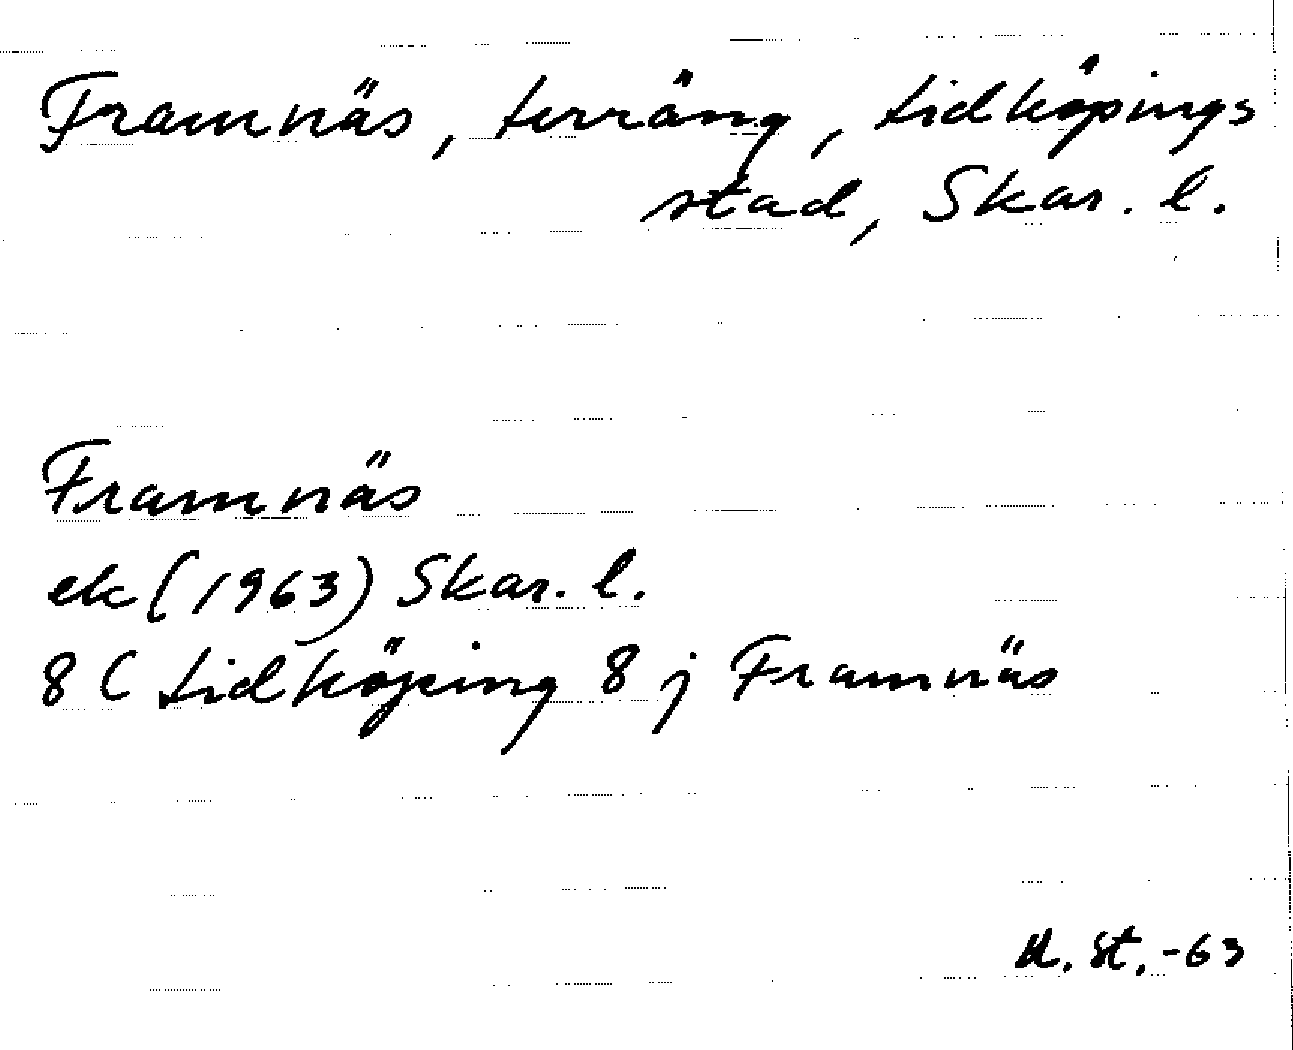 Framnäs, terräng, Lidköpings
stad, Skar. l.
Framnäs
ek (1963) Skar. l.
8 C Lidköping 8 j Framnäs
St. -63